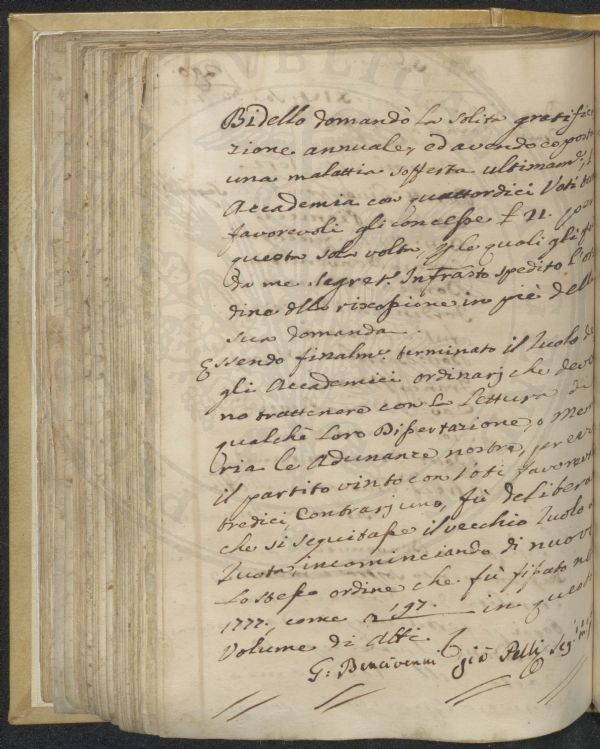 Bidello domandò la solita gratifica
zione annuale, ed avendo esposto
una malattia sofferta ultimam.e, l'
Accademia con quattordici Voti tutti
favorevoli gli concesse £ 21. per
questa sola volta, p le quali gli fù
da me Segret.o Infrastto spedito l'or
dine dlla riscossione in piè della
sua domanda.
Essendo finalm.e terminato il Ruolo de
gli Accademici ordinarj che devo
no trattenere con la Lettura di
qualche loro Dissertazione, o Memo
ria le Adunanze nostre, per
il partito vinto con Voti favorevoli
tredici, Contrarj uno, fù delibera
che si seguitasse il vecchio Ruolo o
Ruota, incominciando di nuovo
lo stesso ordine che fù fissato nel
1777. come a 197. in questo
Volume di Atti.
G: Bencivenni già Pelli Seg.